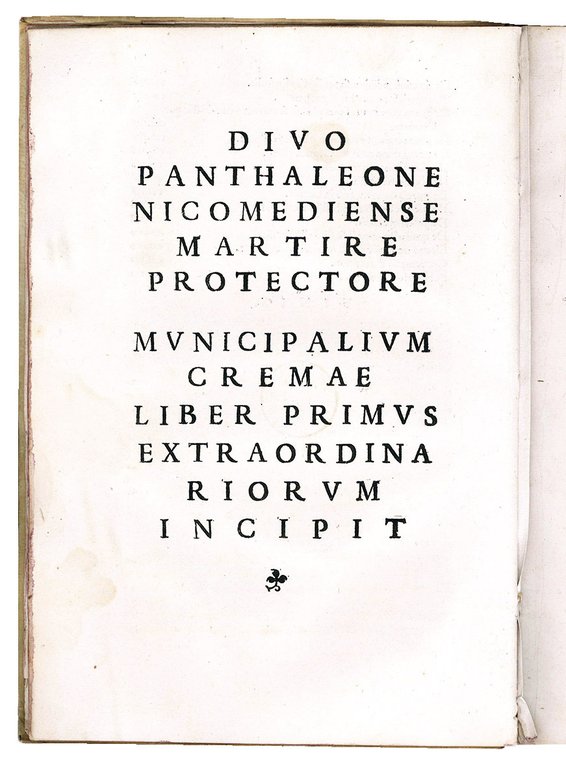 DIVO
PANTHALEONE
NICOMEDIENSE
MARTIRE
PROTECTORE
MVNICIPALIVM
CREMAE
LIBER PRIMVS
EXTRAORDINA
RIORVM
INCIPIT